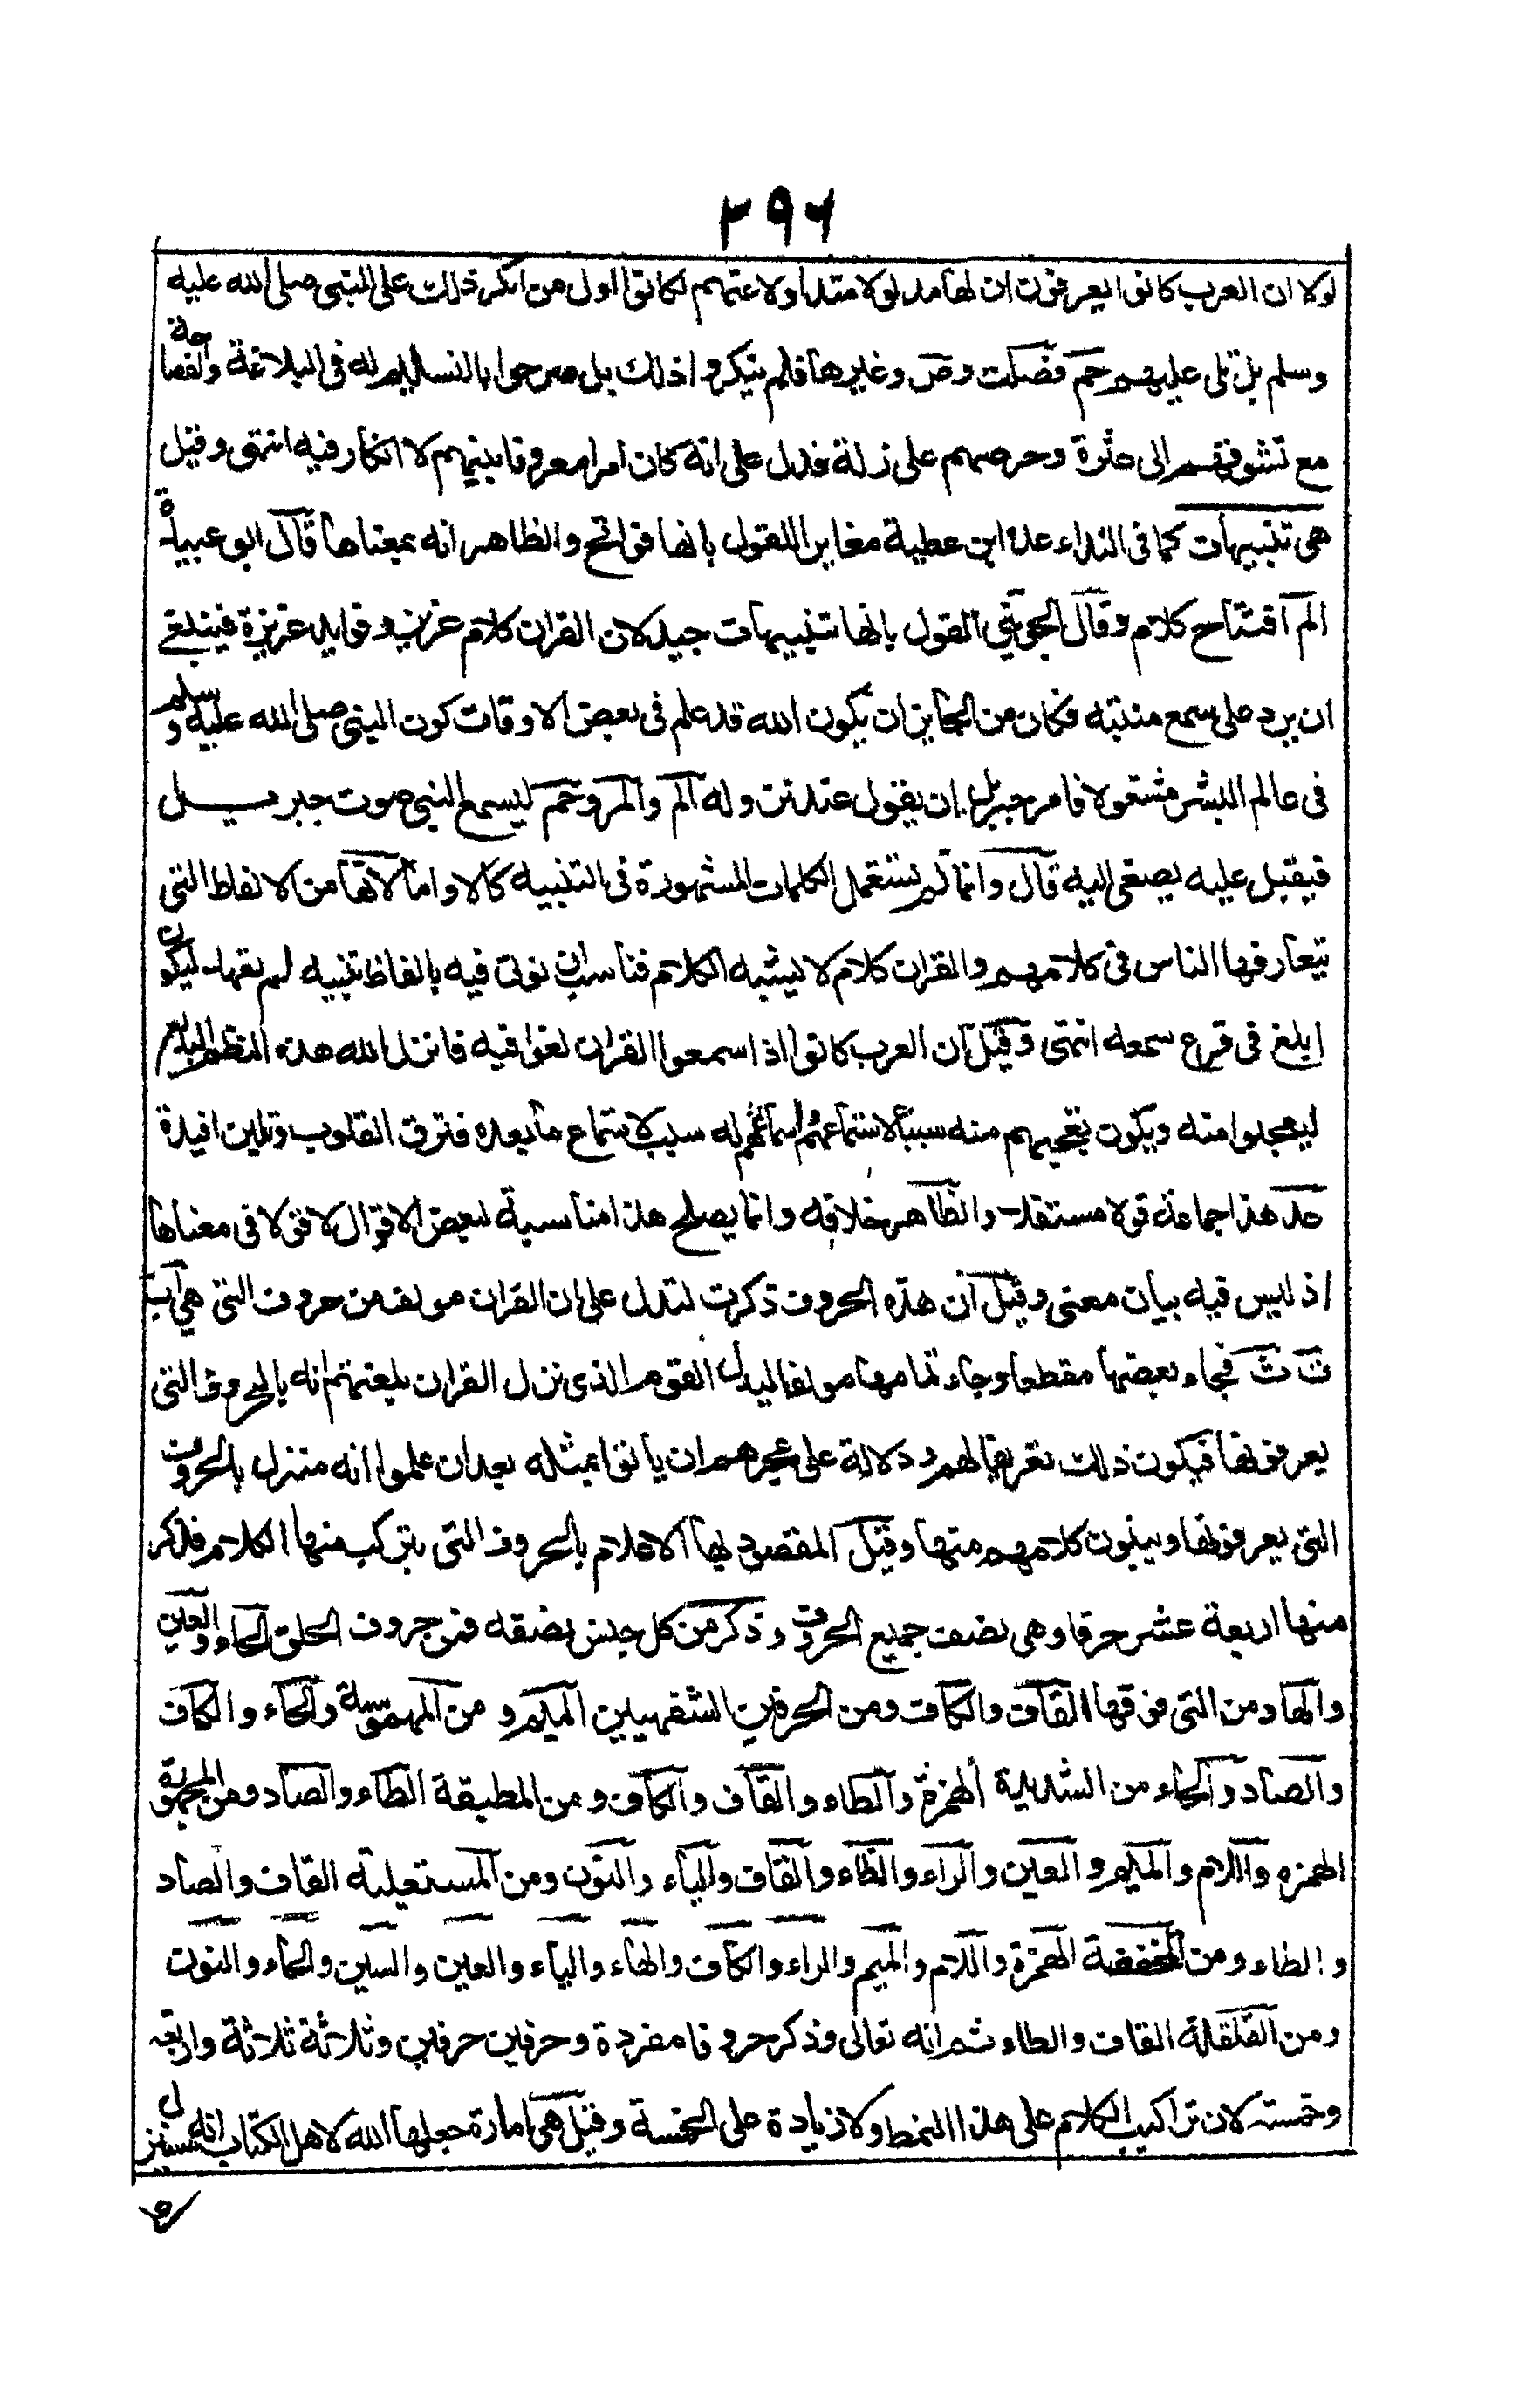 ٢٩٦
لولا ان العرب كانوا يعرفون ان لها مدلولا متداولا عندهم لكانوا اول من انكر ذلك على النبي صلى الله عليه
وسلم بل تلى عليهم حم فصلت وص وغيرها فلم ينكروا ذلك بل صرحوا بالتسليم له في البلاغة والفصاحة
مع تشوفهم الى عثرة وحرصهم على زلة فدل على انه كان امرا معروفا بينهم لا انكار فيه انتهى وقيل
هي تنبيهات كما في النداء عده ابن عطية مغايرا للقول بانها فواتح والظاهر انه بمعناها قال ابو عبيدة
الم افتتاح كلام وقال الجويني القول بانها تنبيهات جيد لان القران كلام عزيز وفوايده عزيزة فينبغي
ان يرد على سمع متنبه فكان من الجايز ان يكون الله قد علم في بعض الاوقات كون النبي صلى الله عليه وسلم
في عالم البشر مشغولا فامر جبريل ان يقول عند نزوله الم والمر وحم ليسمع النبي صوت جبريل
فيقبل عليه يصغى اليه قال وانما لم تستعمل الكلمات المشهورة في التنبيه كالا واما لانها من الالفاظ التي
يتعارفها الناس في كلامهم والقران كلام لا يشبه الكلام فناسب ان يوتى فيه بالفاظ تنبيه لم تعهد ليكون
ابلغ في قرع سمعه انتهى وقيل ان العرب كانوا اذا سمعوا القران لغوا فيه فانزل الله هذا النظم البديع
ليعجبوا منه ويكون تعجبهم منه سببا لاستماعهم واستماعهم له سبب لاستماع ما بعده فترق القلوب وتلين افيدة
عد هذا جماعة قولا مستقلا والظاهر خلافه وانما يصلح هذا مناسبة لبعض الاقوال لا قولا في معناها
اذ ليس فيه بيان معنى وقيل ان هذه الحروف ذكرت لتدل على ان القران مولف من حروف التي هي اب
ت ث فجاء بعضها مقطعا وجاء تمامها مولفا ليدل القوم الذي نزل القران بلغتهم انه بالحروف التي
يعرفونها فيكون ذلك تقريعا لهم ودلالة على عجزهم ان ياتوا بمثله بعد ان علموا انه منزل بالحروف
التي يعرفونها ويبنون كلامهم منها وقيل المقصود بها الاعلام بالحروف التي يتركب منها الكلام فذكر
منها اربعة عشر حرفا وهي نصف جميع الحروف وذكر من كل جنس نصفه فمن حروف الحلق الحاء والعين
والهاء ومن التي فوقها القاف والكاف ومن الحرفين الشفهيين الميم ومن المهموسة والحاء والكاف
والصاد والحاء من الشديدة الهمزة والطاء والقاف والكاف ومن المطبقة الطاء والصاد ومن المجهورة
الهمزه واللام والميم والعين والراء والطاء والقاف والياء والنون ومن المستعلية القاف والصاد
والطاء ومن المنخفضة الهمزة واللام والميم والراء والكاف والهاء والياء والعين والسين والحاء والنون
ومن القلقلة القاف والطاء ثم انه تعالى وذكر حروفا مفردة وحرفين حرفين وثلاثة ثلاثة واربعة
وخمسة لان تراكيب الكلام على هذا النمط ولا زيادة على الخمسة وقيل هي امارة جعلها الله لاهل الكتاب انه سينزل